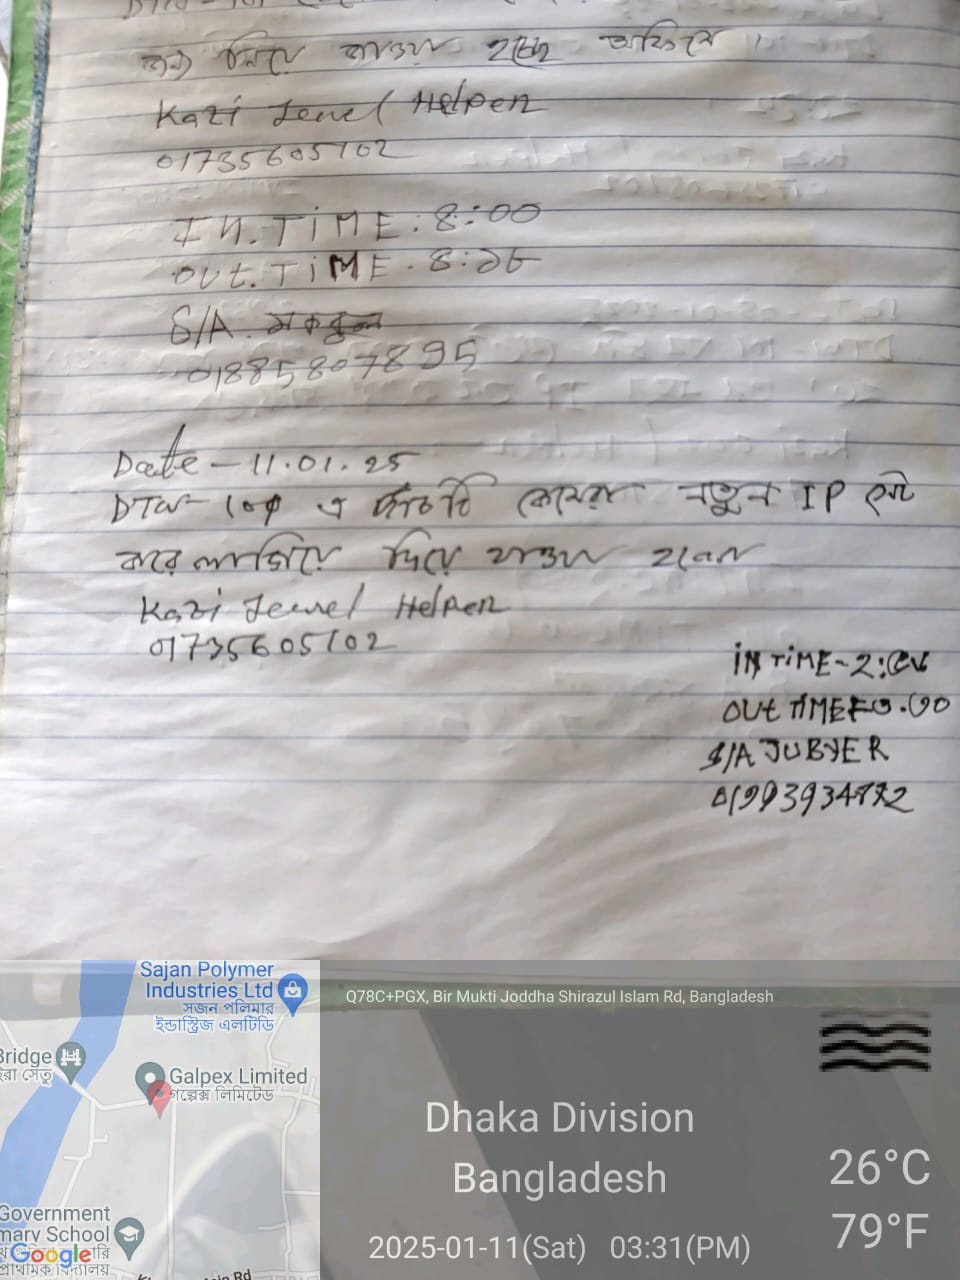 জন্য নিয়ে যাওয়া হচ্ছে অফিসে।
Kazi Jewel Helper
01735605102
IN. TiME. 8:00
OUt. TiME. 8:26
S/A.
01885807895
Date - 11.01.25
DTW- এ টি নতুন IP সেট
করে লাগিয়ে দিয়ে যাওয়া হলো
Kazi Jewel Helper
01735605102
IN TiME-2:
OUt TIME
S/A JUBYER
Sajan Polymer
Industries Ltd
সজন পলিমার
ইন্ডাস্ট্রিজ এলটিডি
Bridge
রা সেতু
Galpex Limited
গল্পেক্স লিমিটেড
Government
mary School
রি
প্রাথমিক বিদ্যালয়
Google
Q78C+PGX, Bir Mukti Joddha Shirazul Islam Rd, Bangladesh
Dhaka Division
Bangladesh
26°C
79°F
2025-01-11(Sat) 03:31(PM)